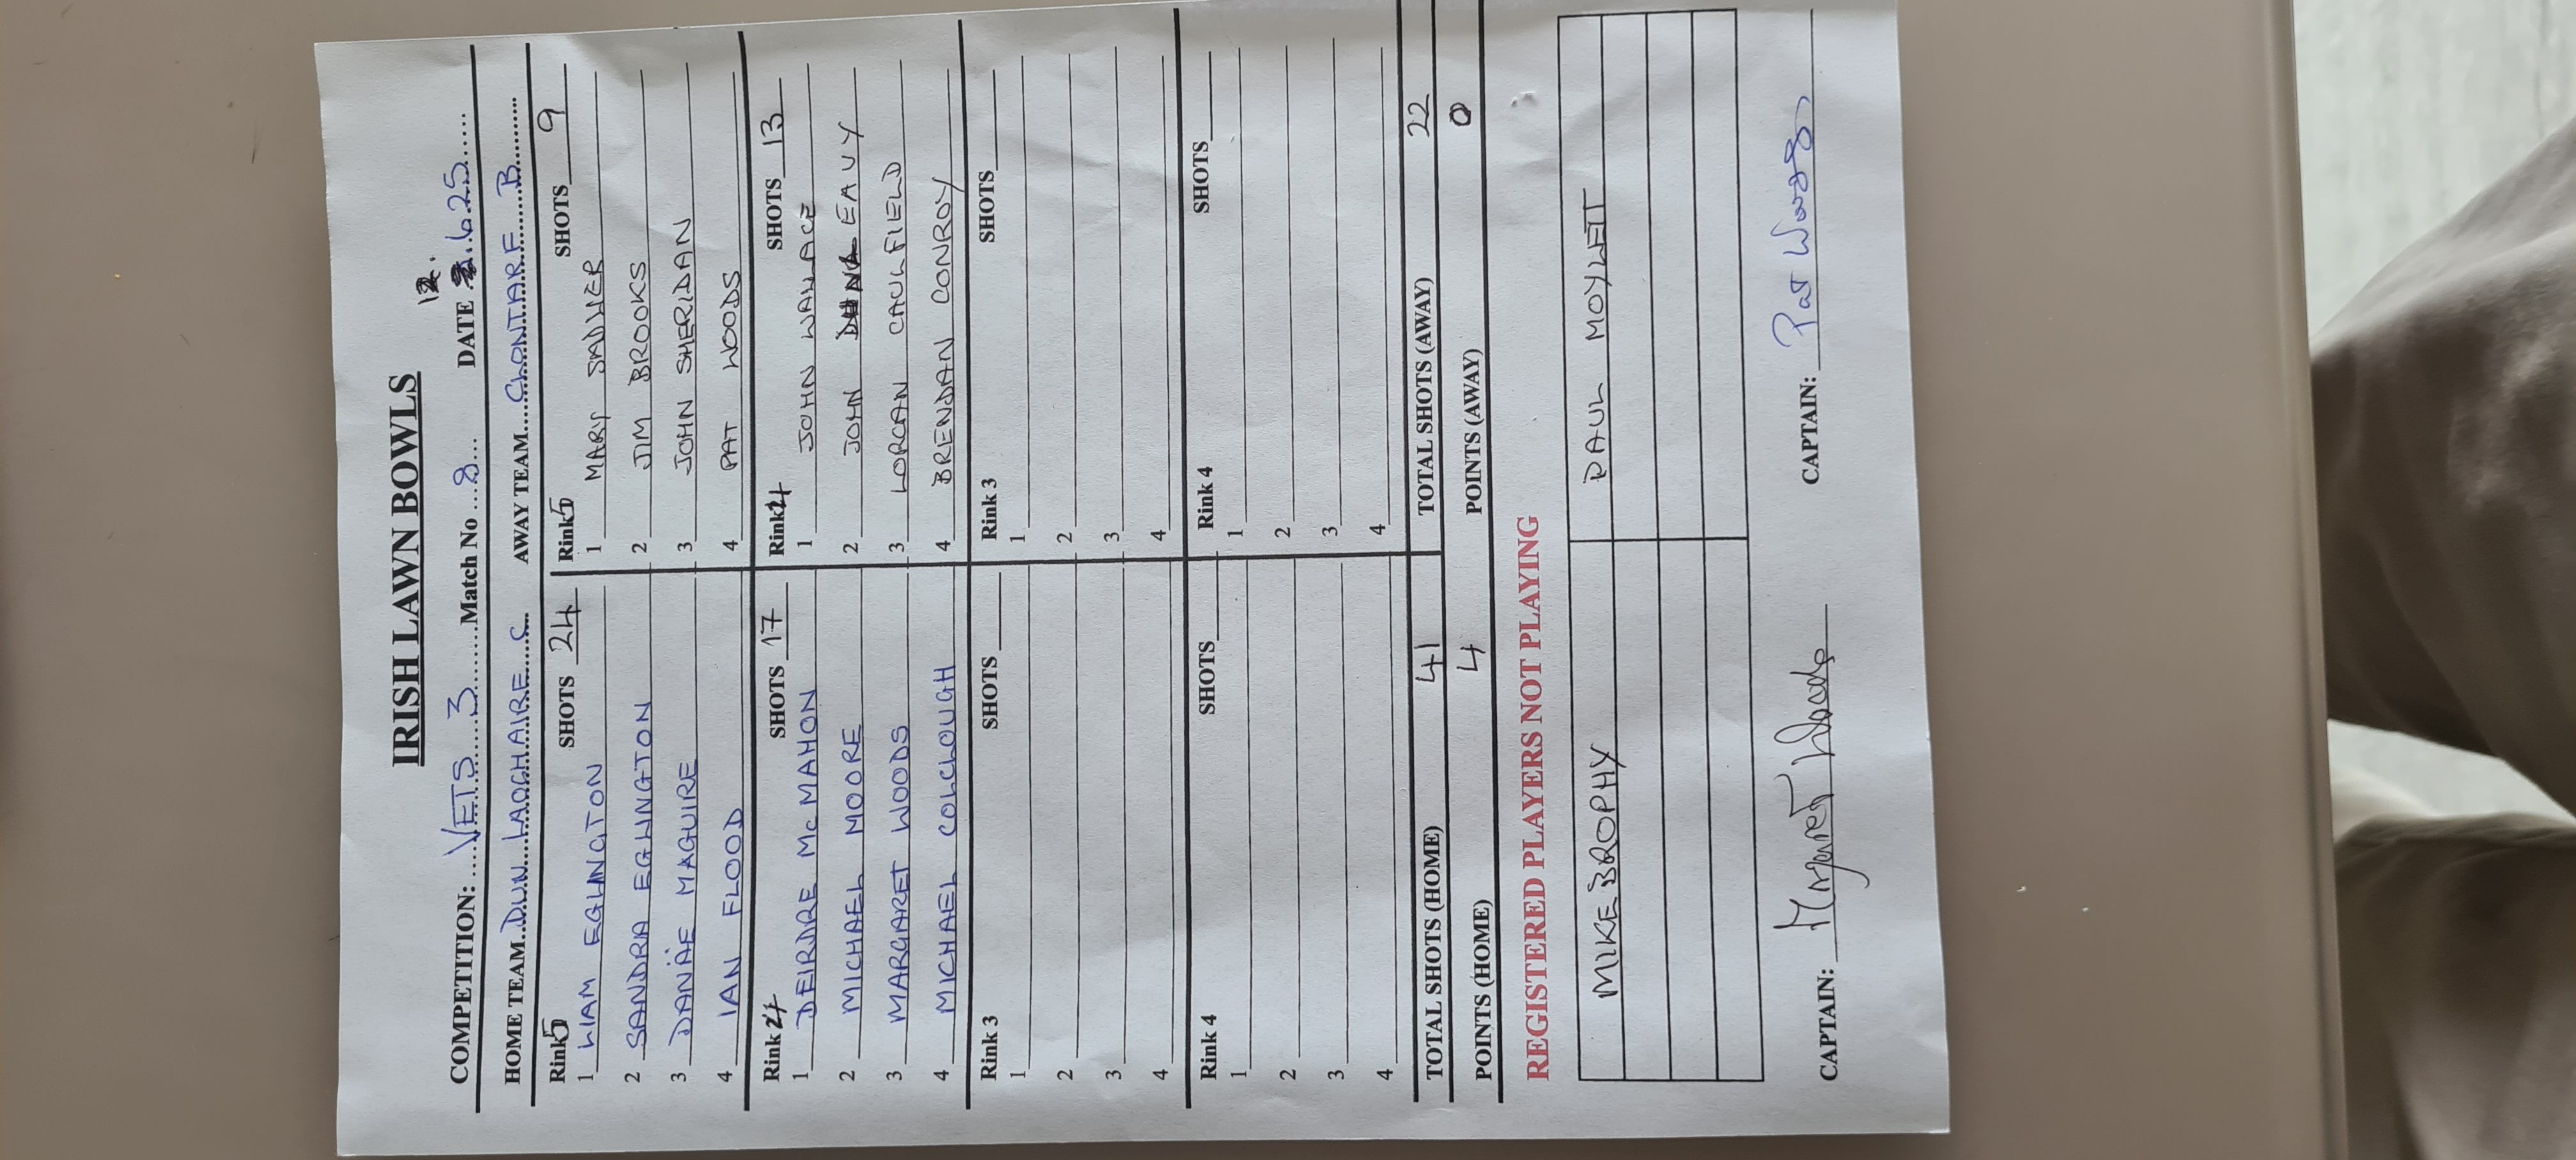 IRISH LAWN BOWLS
COMPETITION: ....VETS 3........Match No ...8.... DATE 12.6.25.....
HOME TEAM..DUN LAOGHAIRE C..... AWAY TEAM....CLONTARF B..........
Rink5 SHOTS 24 Rink5 SHOTS 9
1 LIAM EGLINGTON 1 MARY SADLIER
2 SANDRA EGLINGTON 2 JIM BROOKS
3 DANÄE MAGUIRE 3 JOHN SHERIDAN
4 IAN FLOOD 4 PAT WOODS
Rink 4 SHOTS 17 Rink 4 SHOTS 13
1 DEIRDRE McMAHON 1 JOHN WALLACE
2 MICHAEL MOORE 2 JOHN EAVY
3 MARGARET WOODS 3 LORCAN CAULFIELD
4 MICHAEL COLCLOUGH 4 BRENDAN CONROY
Rink 3 SHOTS Rink 3 SHOTS
1 1
2 2
3 3
4 4
Rink 4 SHOTS Rink 4 SHOTS
1 1
2 2
3 3
4 4
TOTAL SHOTS (HOME) 41 TOTAL SHOTS (AWAY) 22
POINTS (HOME) 4 POINTS (AWAY) 0
REGISTERED PLAYERS NOT PLAYING
MIKE BROPHY PAUL MOYLETT
CAPTAIN: Margaret Woods CAPTAIN: Pat Woods